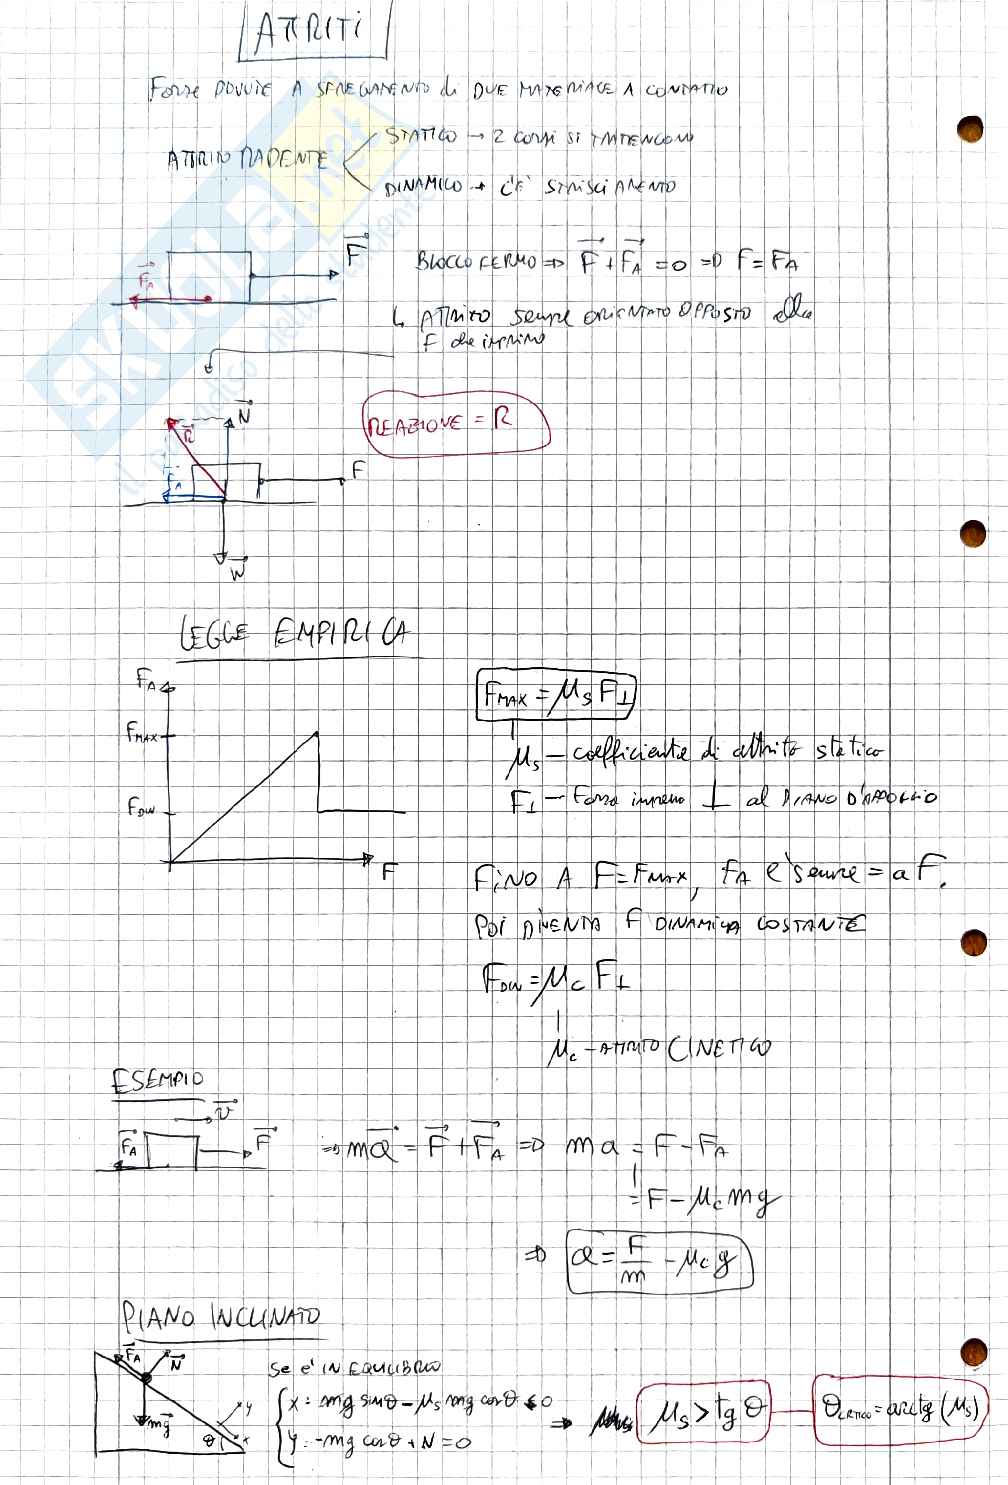 ATTRITI
Forze DOVUTE A SFREGAMENTO di DUE MATERIALI A CONTATTO
ATTRITO RADENTE
STATICO → 2 CORPI SI TRATTENGONO
DINAMICO → C'È STRISCIAMENTO
F⃗
F⃗A
BLOCCO FERMO ⇒ F⃗ + F⃗A = 0 ⇒ F = FA
↳ ATTRITO sempre ORIENTATO OPPOSTO alla
F che imprimo
N⃗
R⃗
REAZIONE = R
F⃗A
F
W⃗
LEGGE EMPIRICA
FA
FMAX
FDIN
F
FMAX = μs F⊥
μs – coefficiente di attrito statico
F⊥ – Forza impressa ⊥ al PIANO D'APPOGGIO
FINO A F = FMAX, FA è sempre = a F.
POI DIVENTA F DINAMICA COSTANTE
FDIN = μc F⊥
μc – ATTRITO CINETICO
ESEMPIO
v⃗
F⃗A
F⃗
⇒ ma⃗ = F⃗ + F⃗A ⇒ ma = F – FA
= F – μc mg
⇒ a = F/m – μc g
PIANO INCLINATO
F⃗A
N⃗
mg⃗
y
x
θ
Se è IN EQUILIBRIO
x: mg sinθ – μs mg cosθ < 0
y: -mg cosθ + N = 0
⇒ μs > tg θ
θCRITICO = arctg (μs)
SKUOLA.net
il paradiso dello studente